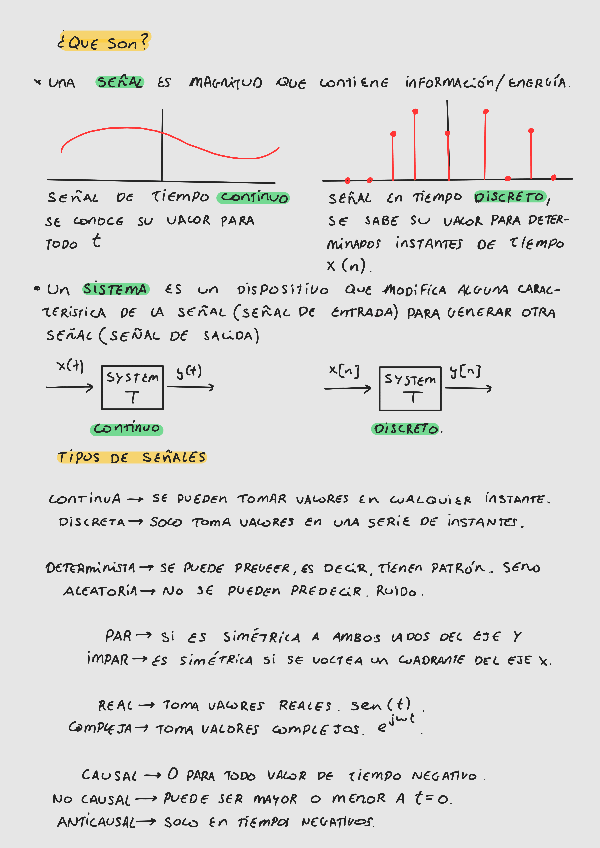 ¿QUE SON?
* UNA SEÑAL ES MAGNITUD QUE CONTIENE INFORMACIÓN/ENERGÍA.
SEÑAL DE TIEMPO CONTINUO
SE CONOCE SU VALOR PARA
TODO t
SEÑAL EN TIEMPO DISCRETO,
SE SABE SU VALOR PARA DETER-
MINADOS INSTANTES DE TIEMPO
X(n).
• UN SISTEMA ES UN DISPOSITIVO QUE MODIFICA ALGUNA CARAC-
TERÍSTICA DE LA SEÑAL (SEÑAL DE ENTRADA) PARA GENERAR OTRA
SEÑAL (SEÑAL DE SALIDA)
x(t) SYSTEM T y(t)
CONTINUO
x[n] SYSTEM T y[n]
DISCRETO.
TIPOS DE SEÑALES
CONTINUA → SE PUEDEN TOMAR VALORES EN CUALQUIER INSTANTE.
DISCRETA → SOLO TOMA VALORES EN UNA SERIE DE INSTANTES.
DETERMINISTA → SE PUEDE PREVEER, ES DECIR, TIENEN PATRÓN. SENO
ALEATORIA → NO SE PUEDEN PREDECIR. RUIDO.
PAR → SI ES SIMÉTRICA A AMBOS LADOS DEL EJE Y
IMPAR → ES SIMÉTRICA SI SE VOLTEA UN CUADRANTE DEL EJE X.
REAL → TOMA VALORES REALES. sen(t).
COMPLEJA → TOMA VALORES COMPLEJOS. e^jwt.
CAUSAL → 0 PARA TODO VALOR DE TIEMPO NEGATIVO.
NO CAUSAL → PUEDE SER MAYOR O MENOR A t=0.
ANTICAUSAL → SOLO EN TIEMPOS NEGATIVOS.